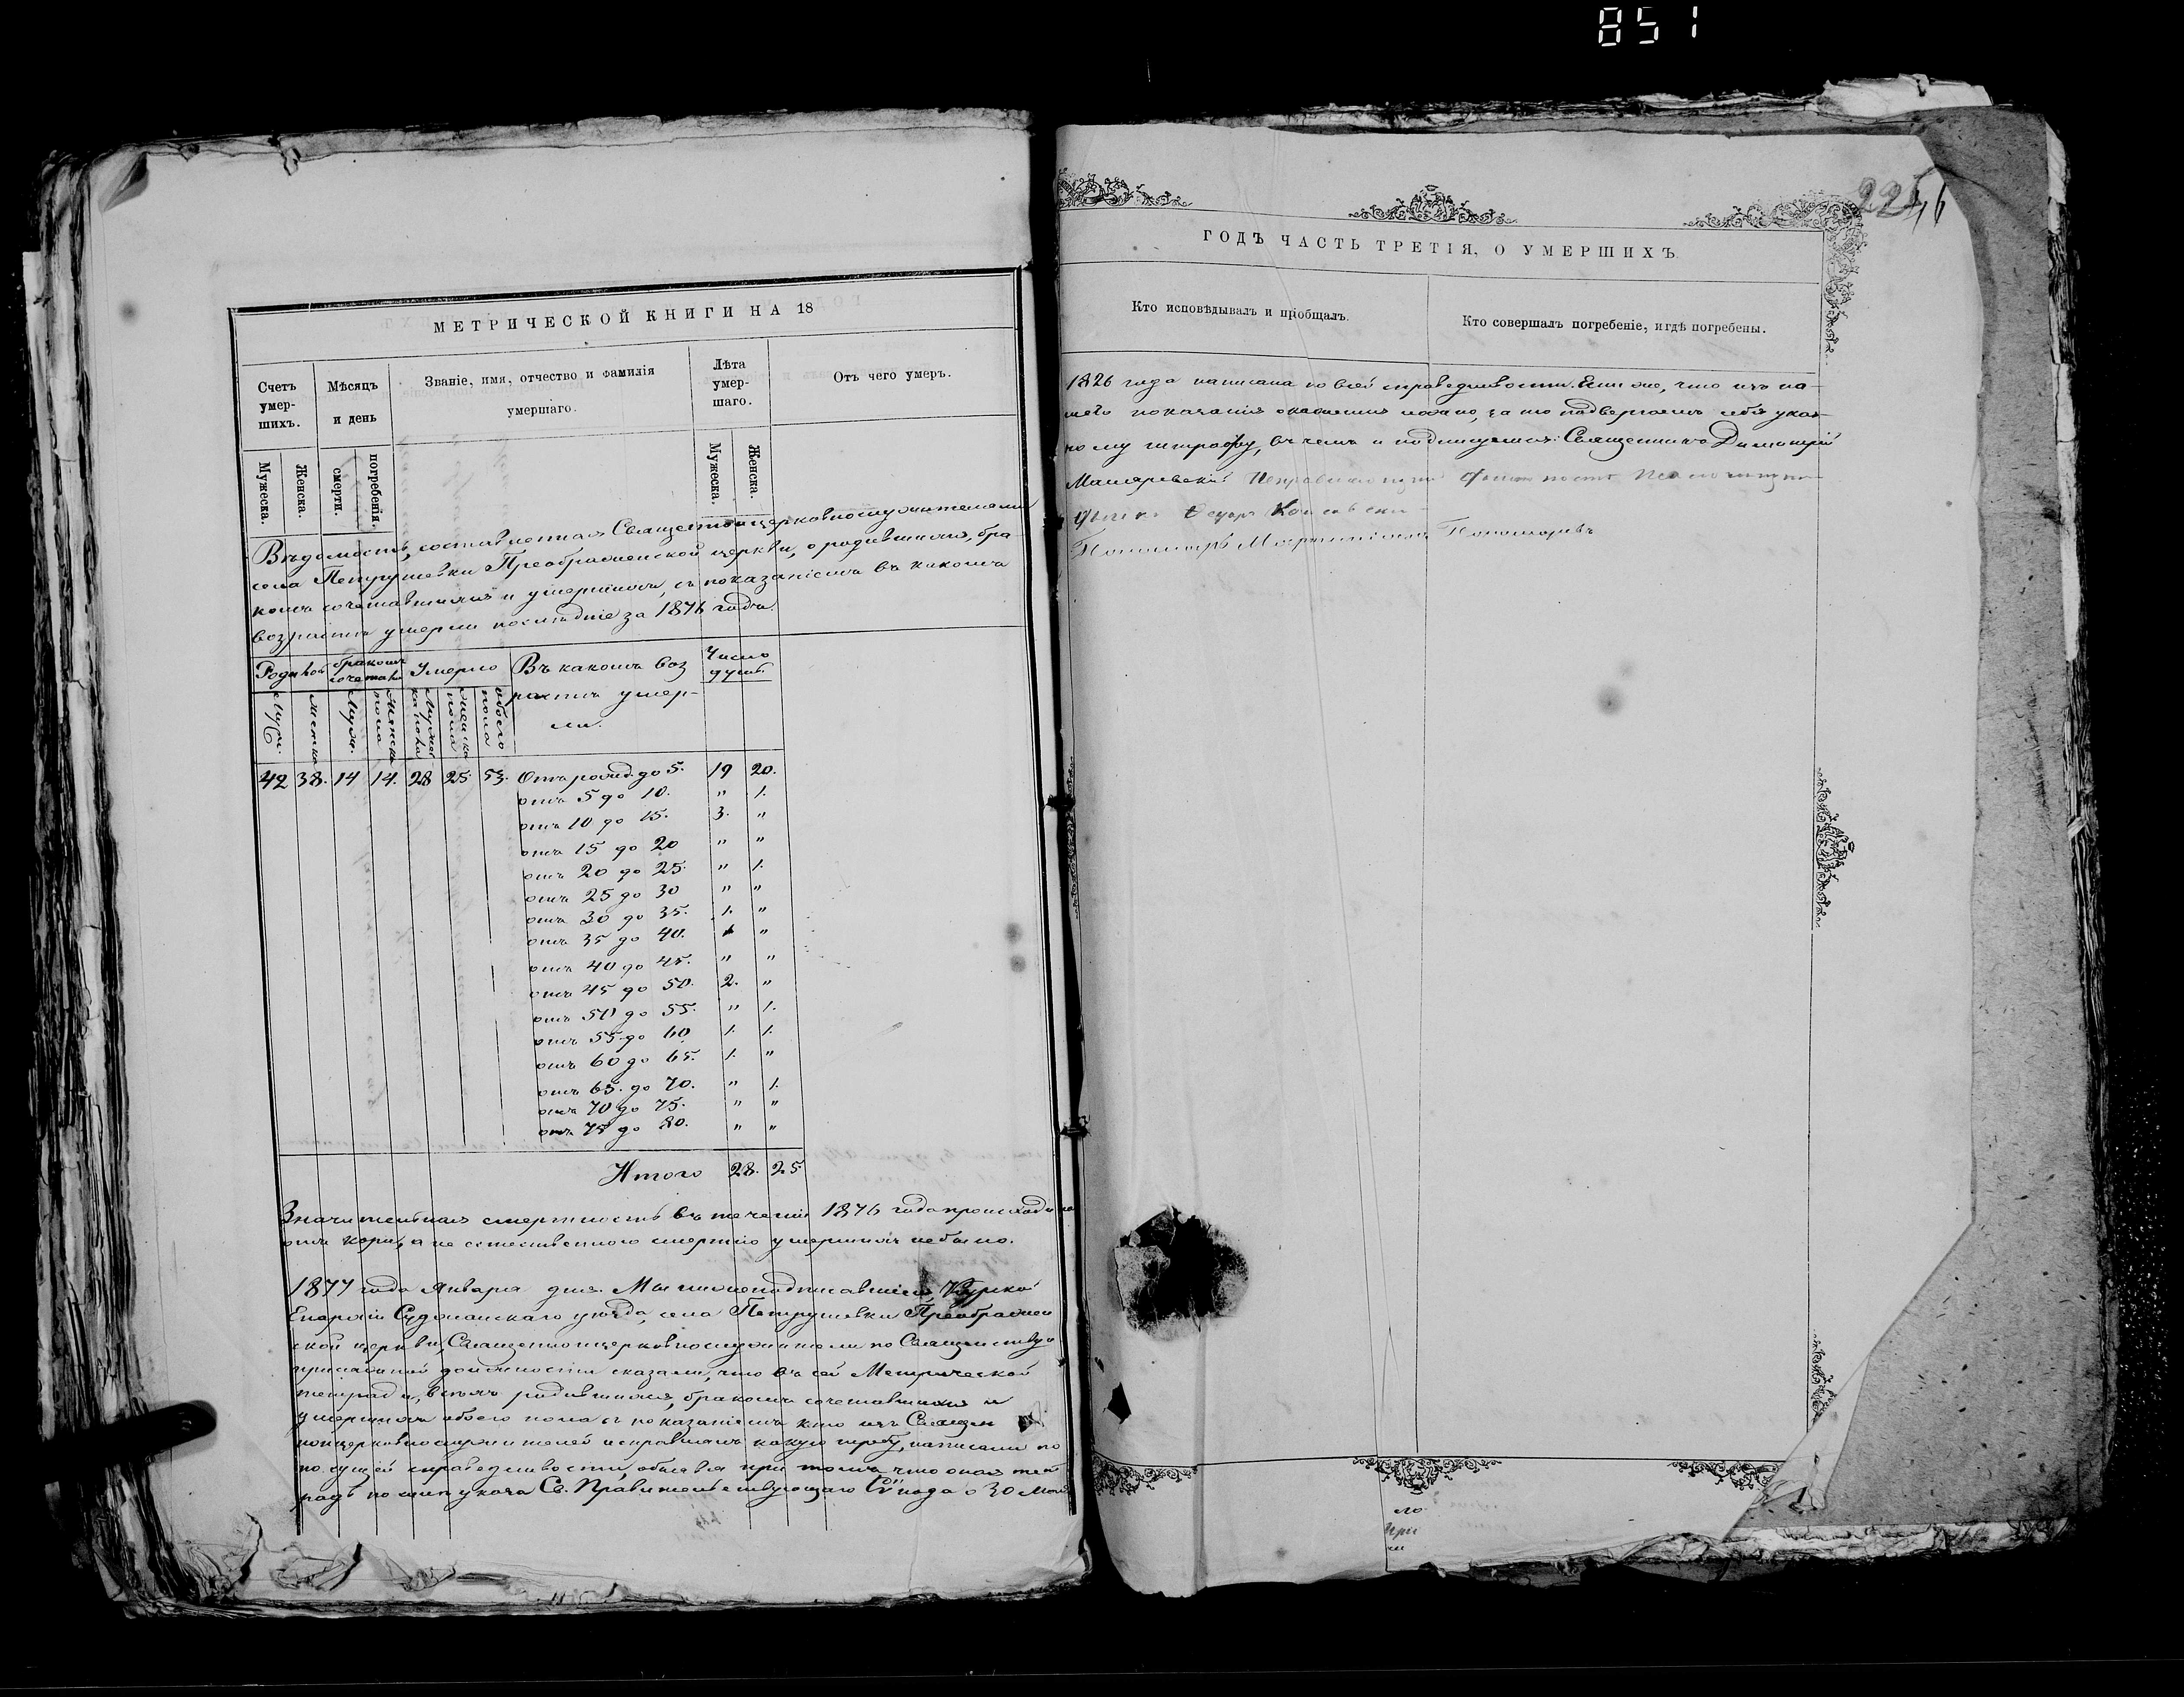 851
МЕТРИЧЕСКОЙ КНИГИ НА 18
Счетъ умер-шихъ.
Мѣсяцъ и день
Званіе, имя, отчество и фамилія умершаго.
Лѣта умер-шаго.
Отъ чего умеръ.
Мужеска.
Женска.
смерти.
погребенія.
Мужеска.
Женска.
Вѣдомость, составленная Священноцерковнослужителями
села Петрушевки Преображенской церкви, о родившихся, бра
комъ сочетавшихся и умершихъ, съ показаніемъ въ какомъ
возрастѣ умерли послѣдніе за 1876 годъ.
Умерло
Въ какомъ воз
растѣ умер-
ли.
Число
душъ
42 38. 14 14. 28 25. 53. Отъ рожд. до 5. 19 20.
отъ 5 до 10. " 1.
отъ 10 до 15. 3. "
отъ 15 до 20 " "
отъ 20 до 25. " 1.
отъ 25 до 30 " "
отъ 30 до 35. 1. "
отъ 35 до 40. "
отъ 40 до 45. " "
отъ 45 до 50. 2. "
отъ 50 до 55. " 1.
отъ 55 до 60 1. 1.
отъ 60 до 65. 1. "
отъ 65. до 70. " 1.
отъ 70 до 75. " "
отъ 75 до 80. " "
Итого 28. 25.
Значительная смертность въ теченіи 1876 года происходила
отъ кори, а не естественною смертію умершихъ небыло.
1877 года Января дня. Мы нижеподписавшіеся, Курской
Епархіи Суджанскаго уѣзда, села Петрушевки Преображен
ской церкви, Священноцерковнослужители по Священству и
присяжной должности сказали, что въ сей Метрической
тетради, всѣхъ родившихся, бракомъ сочетавшихся и
умершихъ обоего пола съ показаніемъ кто изъ Священ
ноцерковнослужителей исправлялъ какую требу, написали по
сущей справедливости, при томъ что оная тет
радь по силѣ указа Св. Правительствующаго Сѵнода
ГОДЪ ЧАСТЬ ТРЕТІЯ, О УМЕРШИХЪ.
Кто исповѣдывалъ и пріобщалъ.
Кто совершалъ погребеніе, и гдѣ погребены.
1826 года написана по всей справедливости. Если же, что изъ на-
шего показанія окажется ложно, за то подвергаемъ себя указ-
ному штрафу, въ чемъ и подписуемся: Священникъ Димитрій
Пономарь Пономаревъ
при